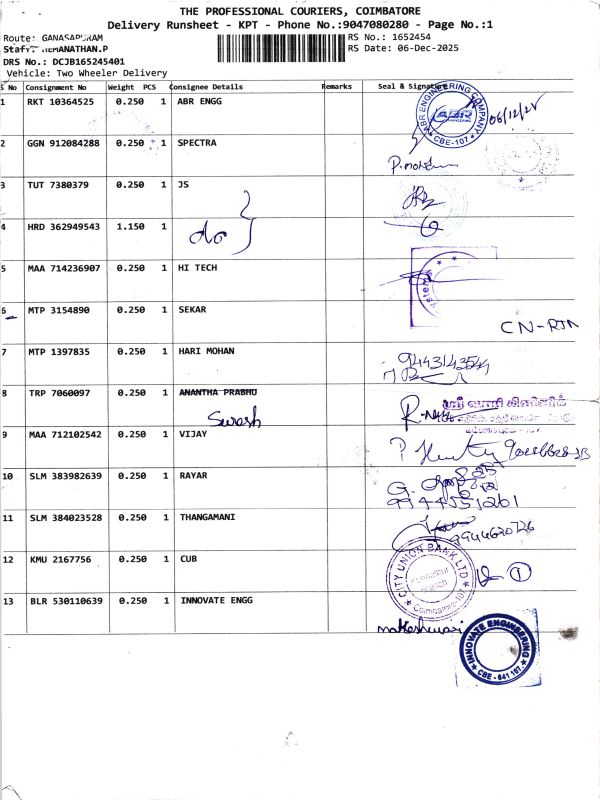 THE PROFESSIONAL COURIERS, COIMBATORE
Delivery Runsheet - KPT - Phone No.:9047080280 - Page No.:1
Route: GANASAPURAM
Staff: HEMANATHAN.P
DRS No.: DCJB165245401
Vehicle: Two Wheeler Delivery
RS No.: 1652454
RS Date: 06-Dec-2025
S No Consignment No Weight PCS Consignee Details Remarks Seal & Signature
1 RKT 10364525 0.250 1 ABR ENGG
ABR ENGINEERING COMPANY
CBE-107
06/12/25
2 GGN 912084288 0.250 1 SPECTRA
P.mohan
3 TUT 7380379 0.250 1 JS
4 HRD 362949543 1.150 1 do
5 MAA 714236907 0.250 1 HI TECH
6 MTP 3154890 0.250 1 SEKAR
CN-RTN
7 MTP 1397835 0.250 1 HARI MOHAN
9443143544
8 TRP 7060097 0.250 1 ANANTHA PRABHU
Suresh
ஸ்ரீ
9 MAA 712102542 0.250 1 VIJAY
10 SLM 383982639 0.250 1 RAYAR
9944551261
11 SLM 384023528 0.250 1 THANGAMANI
9944620726
12 KMU 2167756 0.250 1 CUB
CITY UNION BANK LTD
Branch
Coimbatore-107
1
13 BLR 530110639 0.250 1 INNOVATE ENGG
maheshwari
INNOVATE ENGINEERING
CBE - 641 107